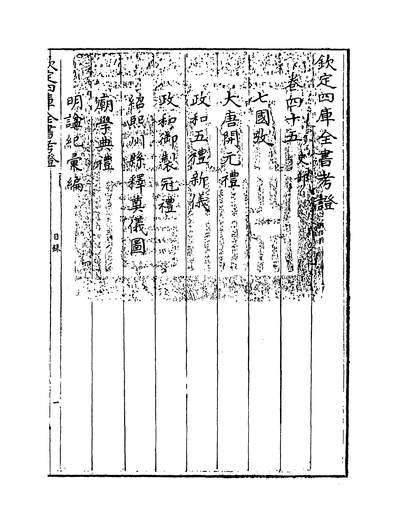 欽定四庫全書考證
卷四十五
史部
七國攷
大唐開元禮
政和五禮新儀
政和御製冠禮
紹熙州縣釋奠儀圖
廟學典禮
明諡紀彙編
欽定四庫全書考證
目錄
一